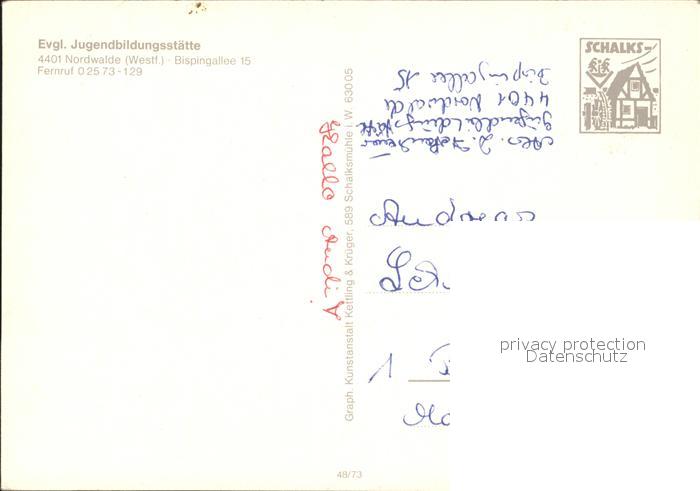 Evgl. Jugendbildungsstätte
4401 Nordwalde (Westf.) · Bispingallee 15
Fernruf 0 25 73 - 129
SCHALKS-
Jugendbildungsstätte
4401 Nordwalde
Bispingallee 15
Hallo Andi!
Graph. Kunstanstalt Kettling & Krüger, 589 Schalksmühle i. W. 63005
Andreas
1
privacy protection
Datenschutz
48/73